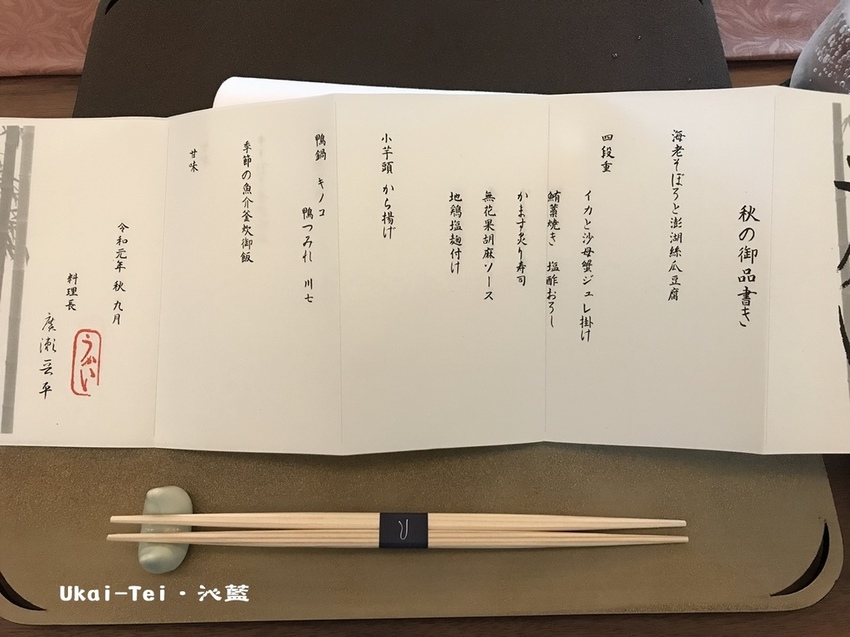 秋の御品書き
海老そぼろと澎湖絲瓜豆腐
四段重
イカと沙母蟹ジュレ掛け
鮪藁焼き 塩酢おろし
かます炙り寿司
無花果胡麻ソース
地鶏塩麹付け
小芋頭 から揚げ
鴨鍋 キノコ
鴨つみれ 川七
季節の魚介釜炊御飯
甘味
令和元年 秋 九月
料理長
廣瀬晋平
うかい
Ukai-Tei・沁藍